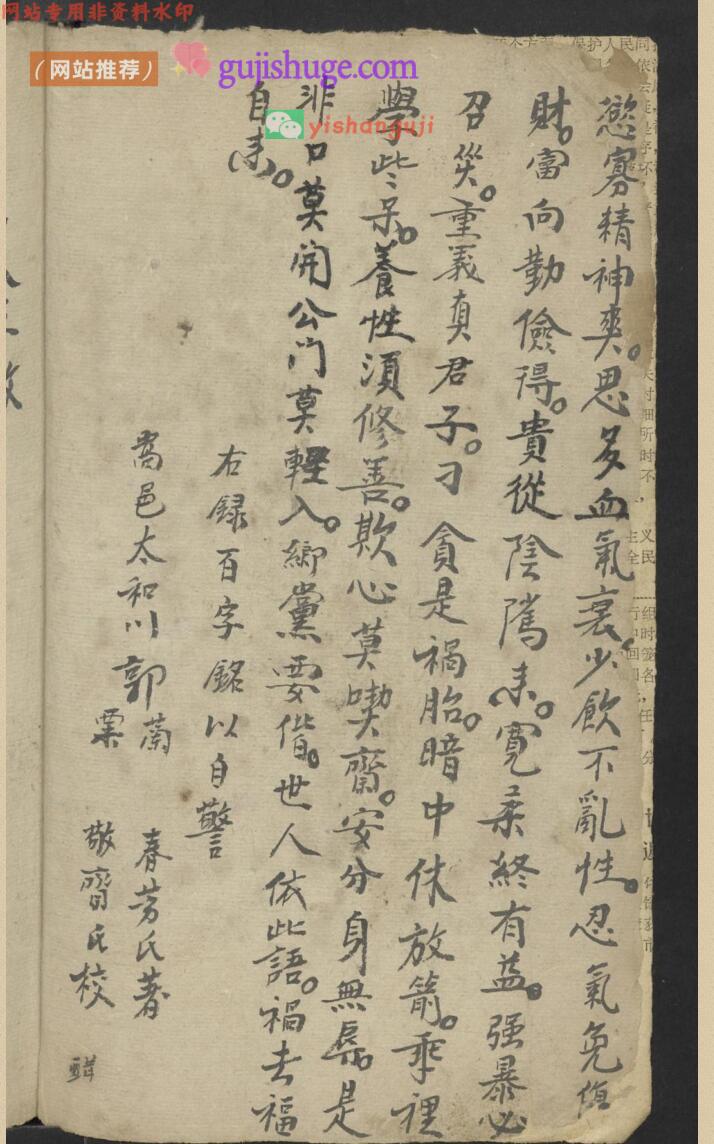 网站专用非资料水印
(网站推荐)
gujishuge.com
yishanguji
慾寡精神爽。思多血氣衰。少飲不亂性。忍氣免傷
財。富向勤儉得。貴從陰隲来。寬柔終有益。强暴必
召災。重義真君子。刁貪是禍胎。暗中休放箭。乖裡
學些呆。養性須修善。欺心莫喫齋。安分身無辱。是
非口莫開公門莫輕入。鄉黨要偕。世人依此語。禍去福
自来。
右録百字銘以自警
邑太和川郭
蘭
票
春芳氏著
敬齋氏校